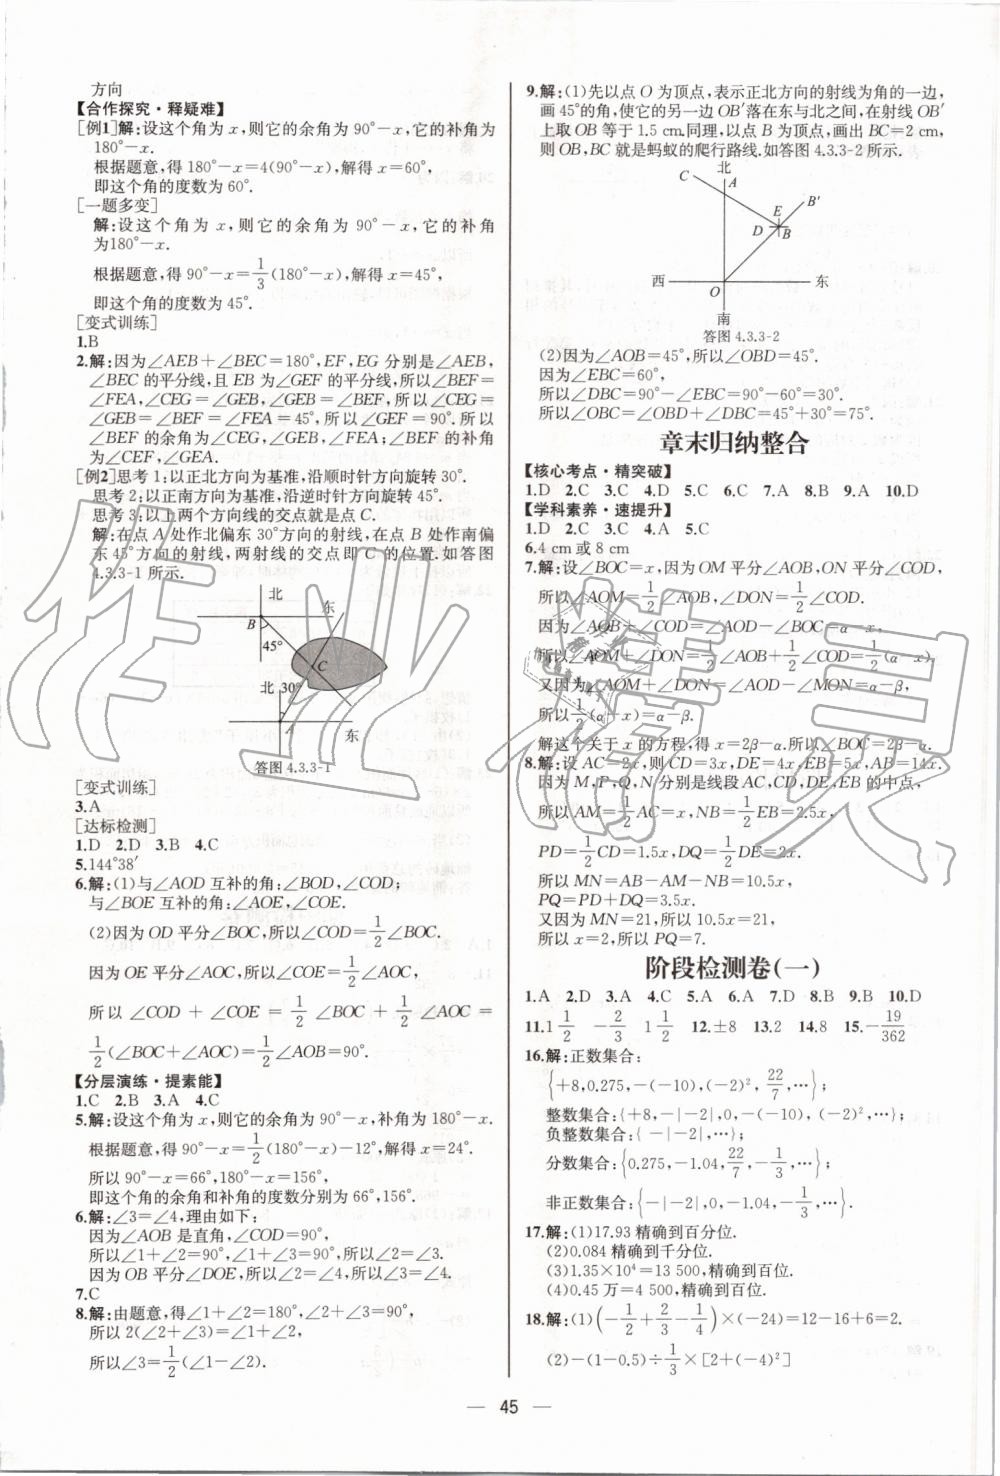 方向
【合作探究·释疑难】
[例1]解:设这个角为x,则它的余角为90°-x,它的补角为
180°-x.
根据题意,得180°-x=4(90°-x),解得x=60°.
即这个角的度数为60°.
[一题多变]
解:设这个角为x,则它的余角为90°-x,它的补角
为180°-x.
根据题意,得90°-x=1/3(180°-x),解得x=45°,
即这个角的度数为45°.
[变式训练]
1.B
2.解:因为∠AEB+∠BEC=180°,EF,EG分别是∠AEB,
∠BEC的平分线,且EB为∠GEF的平分线,所以∠BEF=
∠FEA,∠CEG=∠GEB,∠GEB=∠BEF,所以∠CEG=
∠GEB=∠BEF=∠FEA=45°,所以∠GEF=90°.所以
∠BEF的余角为∠CEG,∠GEB,∠FEA;∠BEF的补角
为∠CEF,∠GEA.
[例2]思考1:以正北方向为基准,沿顺时针方向旋转30°.
思考2:以正南方向为基准,沿逆时针方向旋转45°.
思考3:以上两个方向线的交点就是点C.
解:在点A处作北偏东30°方向的射线,在点B处作南偏
东45°方向的射线,两射线的交点即C的位置.如答图
4.3.3-1所示.
北
东
B
45°
C
北
30°
A
东
答图4.3.3-1
[变式训练]
3.A
[达标检测]
1.D 2.D 3.B 4.C
5.144°38′
6.解:(1)与∠AOD互补的角:∠BOD,∠COD;
与∠BOE互补的角:∠AOE,∠COE.
(2)因为OD平分∠BOC,所以∠COD=1/2∠BOC.
因为OE平分∠AOC,所以∠COE=1/2∠AOC,
所以∠COD+∠COE=1/2∠BOC+1/2∠AOC=
1/2(∠BOC+∠AOC)=1/2∠AOB=90°.
【分层演练·提素能】
1.C 2.B 3.A 4.C
5.解:设这个角为x,则它的余角为90°-x,补角为180°-x.
根据题意,得90°-x=1/2(180°-x)-12°,解得x=24°.
所以90°-x=66°,180°-x=156°.
即这个角的余角和补角的度数分别为66°,156°.
6.解:∠3=∠4,理由如下:
因为∠AOB是直角,∠COD=90°,
所以∠1+∠2=90°,∠1+∠3=90°,所以∠2=∠3.
因为OB平分∠DOE,所以∠2=∠4,所以∠3=∠4.
7.C
8.解:由题意,得∠1+∠2=180°,∠2+∠3=90°,
所以2(∠2+∠3)=∠1+∠2,
所以∠3=1/2(∠1-∠2).
9.解:(1)先以点O为顶点,表示正北方向的射线为角的一边,
画45°的角,使它的另一边OB′落在东与北之间,在射线OB′
上取OB等于1.5 cm.同理,以点B为顶点,画出BC=2 cm,
则OB,BC就是蚂蚁的爬行路线.如答图4.3.3-2所示.
北
C
A
B′
E
D
B
西
O
东
南
答图4.3.3-2
(2)因为∠AOB=45°,所以∠OBD=45°.
因为∠EBC=60°,
所以∠DBC=90°-∠EBC=90°-60°=30°.
所以∠OBC=∠OBD+∠DBC=45°+30°=75°.
章末归纳整合
【核心考点·精突破】
1.D 2.C 3.C 4.D 5.C 6.C 7.A 8.B 9.A 10.D
【学科素养·速提升】
1.D 2.C 3.C 4.A 5.C
6.4 cm或8 cm
7.解:设∠BOC=x,因为OM平分∠AOB,ON平分∠COD,
所以∠AOM=1/2∠AOB,∠DON=1/2∠COD.
因为∠AOB+∠COD=∠AOD-∠BOC=α-x,
所以∠AOM+∠DON=1/2∠AOB+1/2∠COD=1/2(α-x).
又因为∠AOM+∠DON=∠AOD-∠MON=α-β,
所以1/2(α-x)=α-β.
解这个关于x的方程,得x=2β-α.所以∠BOC=2β-α.
8.解:设AC=2x,则CD=3x,DE=4x,EB=5x,AB=14x.
因为M,P,Q,N分别是线段AC,CD,DE,EB的中点,
所以AM=1/2AC=x,NB=1/2EB=2.5x,
PD=1/2CD=1.5x,DQ=1/2DE=2x.
所以MN=AB-AM-NB=10.5x,
PQ=PD+DQ=3.5x.
又因为MN=21,所以10.5x=21,
所以x=2,所以PQ=7.
阶段检测卷(一)
1.A 2.D 3.A 4.C 5.A 6.A 7.D 8.B 9.B 10.D
11.1 1/2 -2/3 1 1/2 12.±8 13.2 14.8 15.-19/362
16.解:正数集合:
{+8,0.275,-(-10),(-2)²,22/7,…};
整数集合:{+8,-|-2|,0,-(-10),(-2)²,…};
负整数集合:{-|-2|,…};
分数集合:{0.275,-1.04,22/7,-1/3,…};
非正数集合:{-|-2|,0,-1.04,-1/3,…}.
17.解:(1)17.93精确到百分位.
(2)0.084精确到千分位.
(3)1.35×10⁴=13 500,精确到百位.
(4)0.45万=4 500,精确到百位.
18.解:(1)(-1/2+2/3-1/4)×(-24)=12-16+6=2.
(2)-(1-0.5)÷1/3×[2+(-4)²]
45
作业精灵